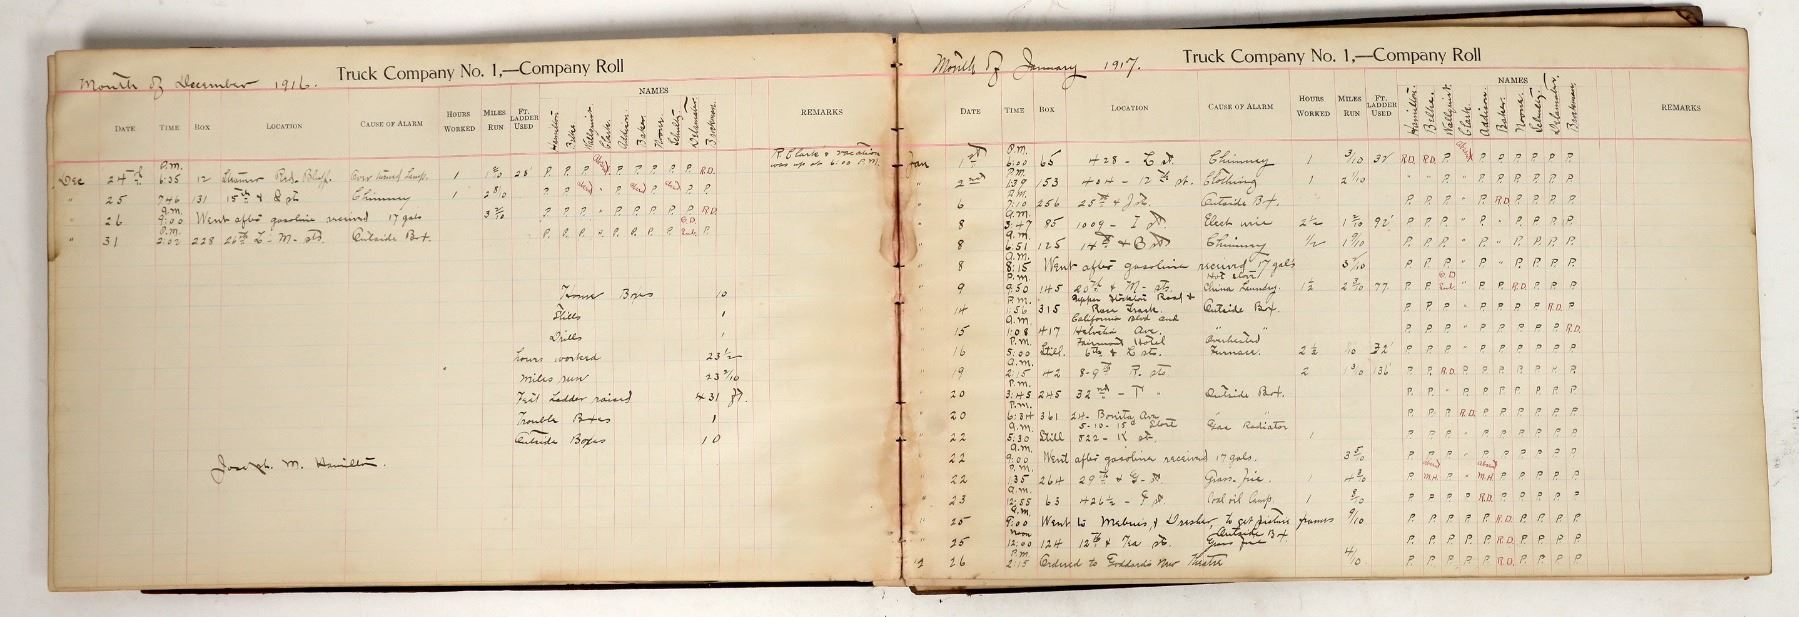 Month of December 1916. Truck Company No. 1,—Company Roll
NAMES
DATE TIME BOX LOCATION CAUSE OF ALARM HOURS WORKED MILES RUN FT. LADDER USED Hamilton. Belke. Wallquist. Clark. Addison. Baker. Noone. Schultz. Delamater. Brockman. REMARKS
R. Clark's vacation
was up at 6:00 P.M.
Dec 24th A.M. 6:35 12 Steamer Red Bluff. Over turned Lamp. 1 25' P. P. P. Absent P. P. P. P. P. R.D.
" 25 7:46 131 15th & S sts Chimney 1 2 8/10 P. P. " P. P. P. P.
" 26 A.M. 9:00 Went after gasoline received 17 gals 3 2/10 P. P. P. " P. P. P. P. P. R.D.
" 31 P.M. 2:02 228 26th L - M - sts. Outside Box. P. P. P. P. P. P. P. P. P.
Home Boxes 10
Stills 1
Drills 1
Hours worked 23 1/2
Miles run 23 2/10
Feet Ladder raised 431 ft.
Trouble Boxes 1
Outside Boxes 10
Joseph. M. Hamilton.
Month of January 1917. Truck Company No. 1,—Company Roll
NAMES
DATE TIME BOX LOCATION CAUSE OF ALARM HOURS WORKED MILES RUN FT. LADDER USED Hamilton. Belke. Wallquist. Clark. Addison. Baker. Noone. Schultz. Delamater. Brockman. REMARKS
Jan 1st P.M. 6:00 65 428 - L st. Chimney 1 3/10 32' R.D. R.D. P. Absent P. P. P. P. P. P.
" 2nd P.M. 1:39 153 404 - 12th st. Clothing 1 2 1/10 " " P. " P. P. P. P. P. P.
" 6 7:10 256 25th & J sts. Outside Box. P. P. P. " P. R.D. P. P. P. P.
" 8 A.M. 3:47 85 1009 - I st. Elect wire 2 1/2 1 2/10 92' P. P. P. " P. " P. P. P. P.
" 8 A.M. 6:51 125 14th & B st Chimney 1/2 1 9/10 P. P. P. " P. " P. P. P. P.
" 8 A.M. 8:15 Went after gasoline received 17 gals 3 P. P. P. " P. " P. P. P. P.
Hot stove
" 9 P.M. 9:50 145 20th & M - sts. China Laundry. 1 1/2 2 77 P. P. " P. P. R.D. P. P. P.
Upper Stockton Road &
" 14 P.M. 1:56 315 Race Track. Outside Box P. P. P. " P. P. P. P. R.D. P.
California Blvd and
" 15 A.M. 1:08 417 Helvetia Ave. " " P. P. P. " P. P. P. P. P. R.D.
Fairmont Hotel Overheated
" 16 P.M. 5:00 Still. 6th & L sts. Furnace. 2 1/2 10 32' P. P. P. " P. P. P. P. P. P.
" 19 A.M. 2:15 42 8-9th R. sts. 2 1 3/10 136' P. P. R.D. P. P. P. P. P. P.
" 20 P.M. 3:45 245 32nd - T " Outside Box. P. P. P. " P. P. P. P. P. P.
" 20 P.M. 6:34 361 24 - Bonita Ave " " P. P. P. R.D. P. P. P. P. P. P.
5-10-15¢ Store Gas Radiator
" 22 A.M. 5:30 Still 822 - K st. 1 P. P. P. " P. P. P. P. P. P.
" 22 A.M. 9:00 Went after gasoline received 17 gals. 3 5/10 P. P. P. " P. P. P. P. P. P.
" 22 P.M. 1:35 264 29th & G - st. Grass - fire. 1 4 P. Absent M.H. P. " Absent M.H. P. P. P. P. P.
" 23 A.M. 12:55 63 426 1/2 - st. Coal oil Lamp. 1 8/10 P. P. P. P. R.D. P. P. P. P. P.
" 25 A.M. 9:00 Went to Mebius, & Drescher, to get picture frames 9/10 P. P. P. P. P. R.D. P. P. P. P.
Outside Box
" 25 Noon 12:00 124 12th & sts. Grass fire P. P. P. P. P. R.D. P. P. P. P.
" 26 P.M. 2:15 Ordered to Goddard's New Theatre 4/10 P. P. P. P. P. R.D. P. P. P. P.